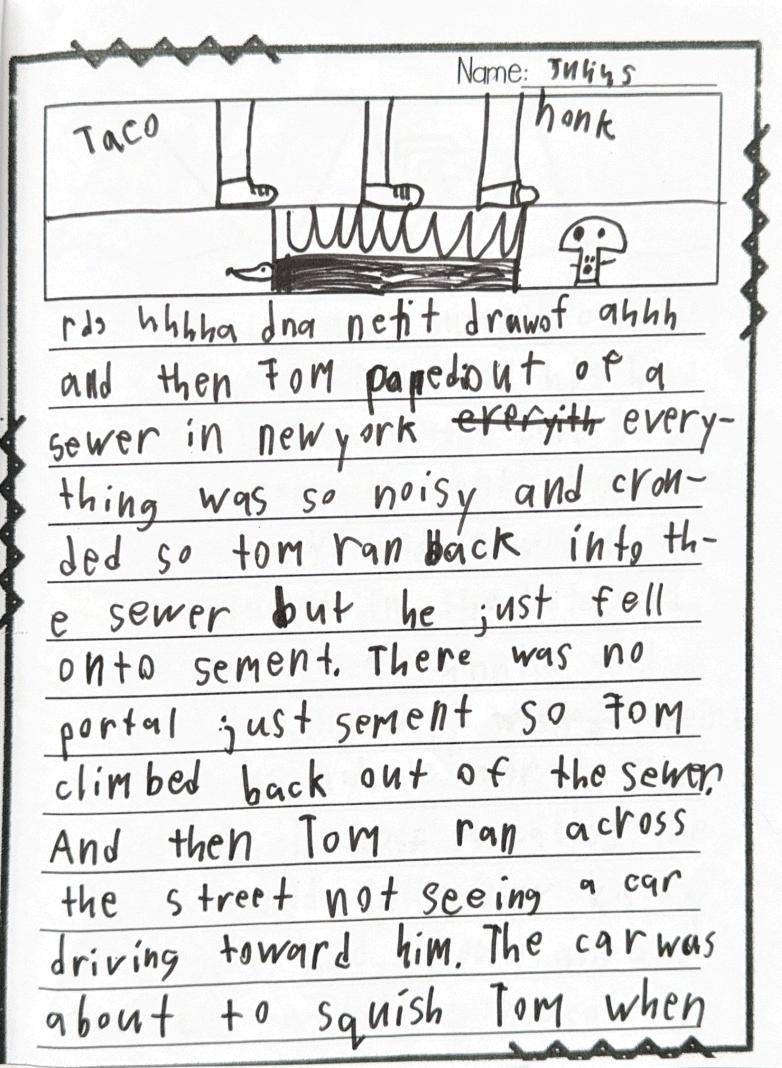 Name: Julius
Taco
honk
rds hhhha dna netit drawof ahhh
and then Tom papedout of a
sewer in new york ereryith every-
thing was so noisy and crou-
ded so tom ran back into th-
e sewer but he just fell
onto sement. There was no
portal just sement so Tom
climbed back out of the sewer.
And then Tom ran across
the street not seeing a car
driving toward him. The car was
about to squish Tom when